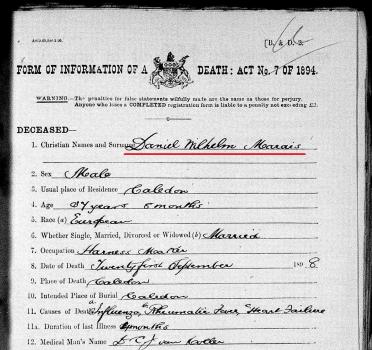 [B. & D. 2.
FORM OF INFORMATION OF A DEATH: ACT No. 7 OF 1894.
WARNING.—The penalties for false statements wilfully made are the same as those for perjury.
Anyone who loses a COMPLETED registration form is liable to a penalty not exceeding £1.
DECEASED—
1. Christian Names and Surname Daniel Wilhelm Marais
2. Sex Male
3. Usual place of Residence Caledon
4. Age 37 years 5 months
5. Race (a) European
6. Whether Single, Married, Divorced or Widowed (b) Married
7. Occupation Harness Maker
8. Date of Death Twenty first September 1898
9. Place of Death Caledon
10. Intended Place of Burial Caledon
11. Causes of Death Influenza Rheumatic Fever Heart Failure
11a. Duration of last Illness months
12. Medical Man's Name